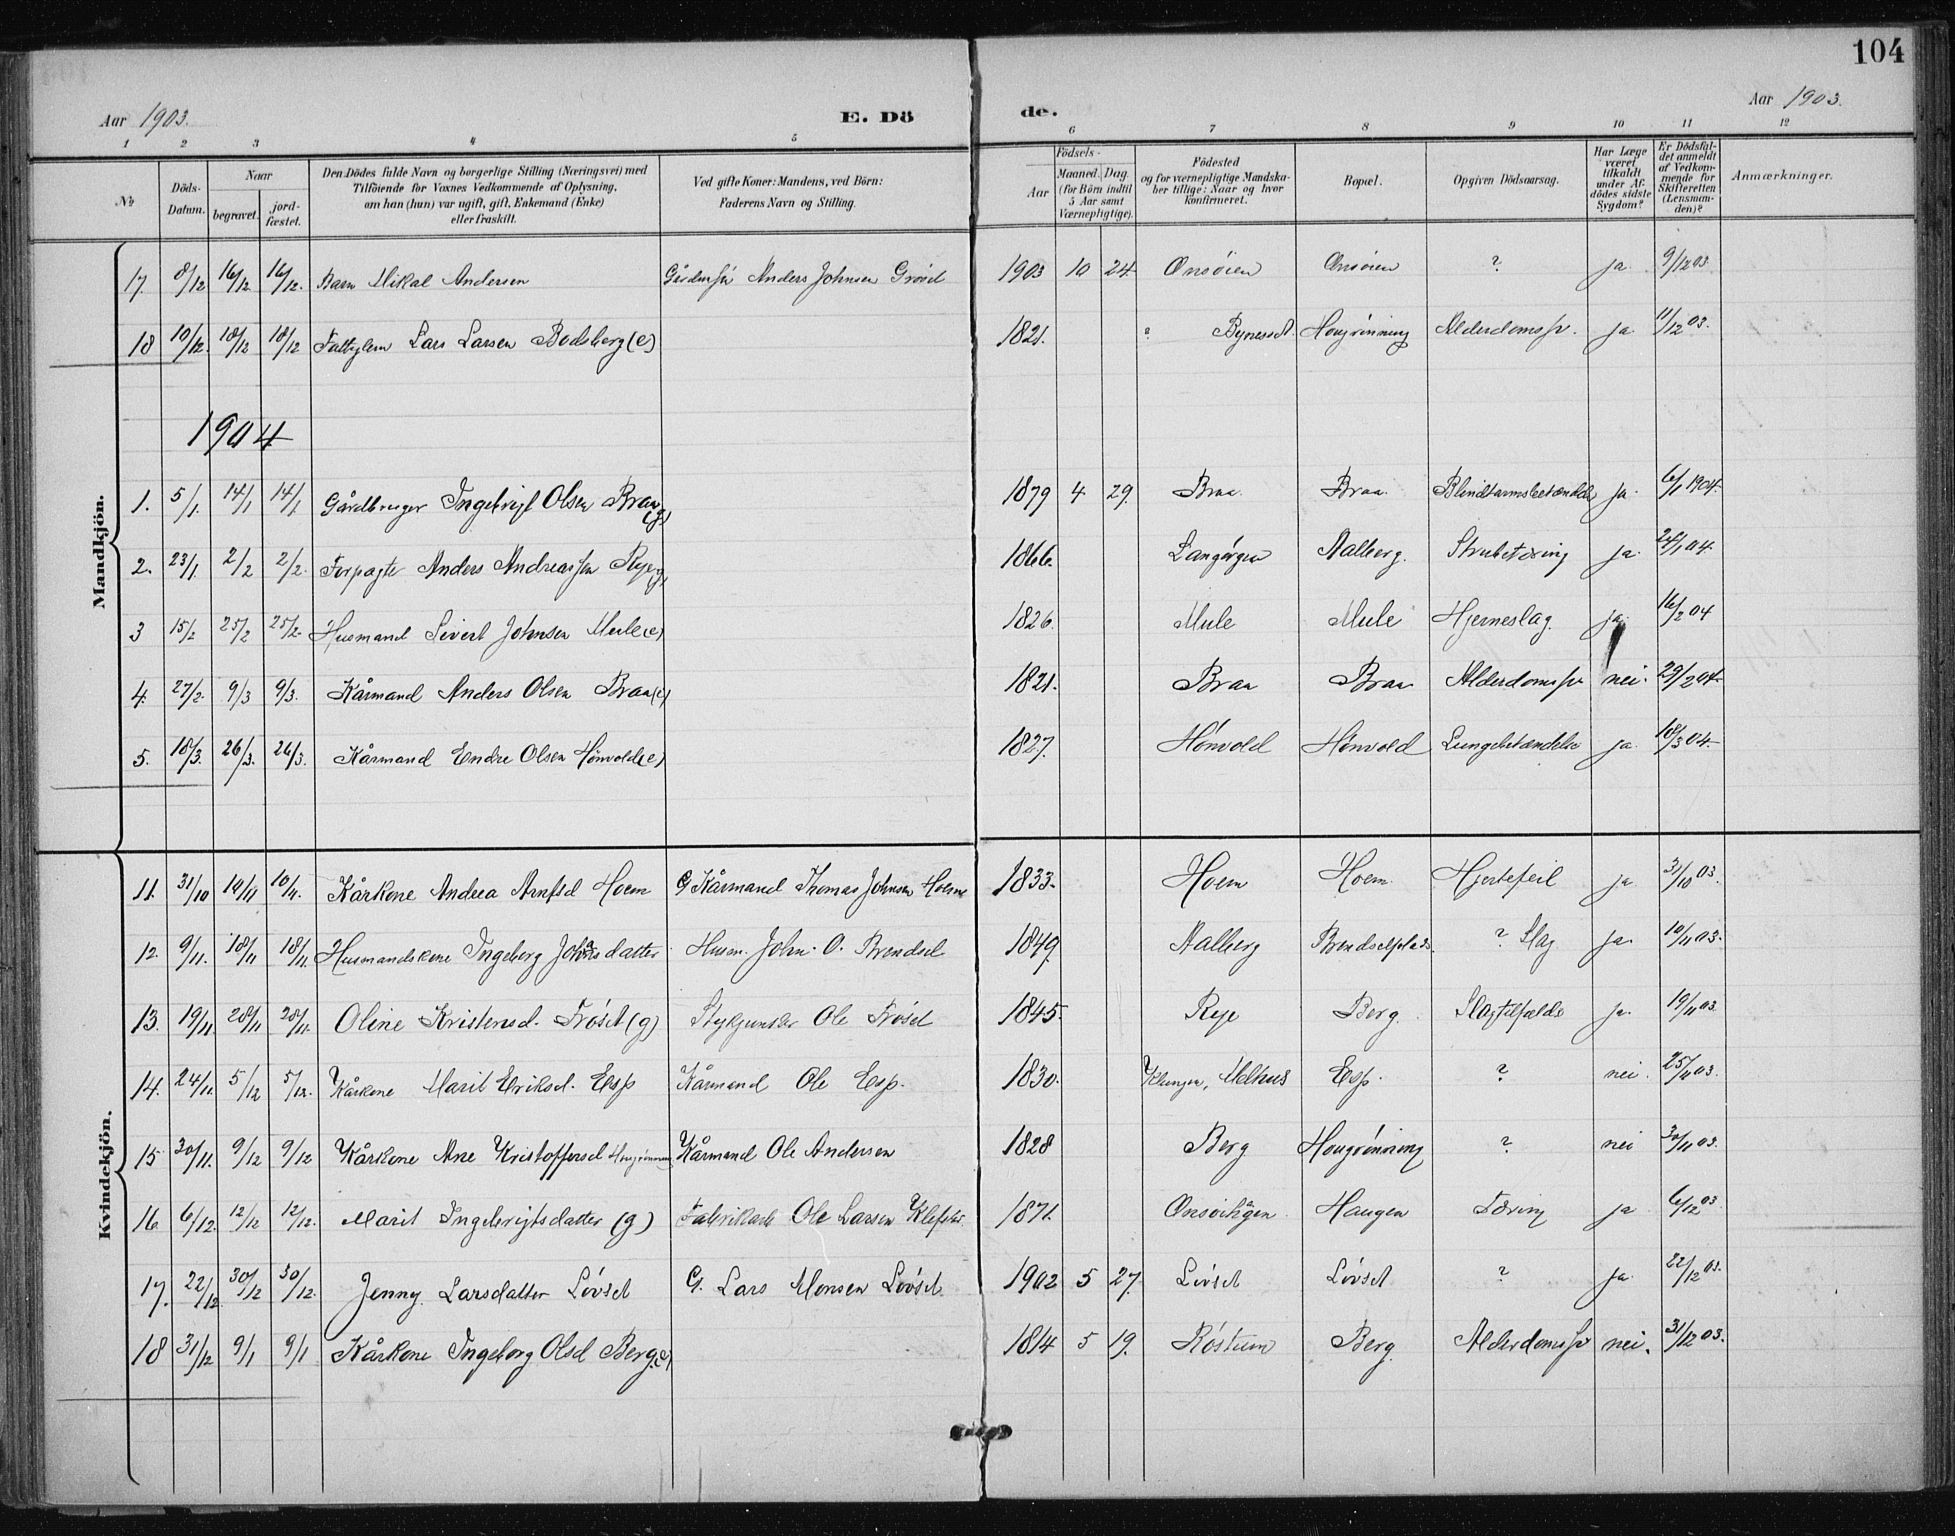 104
Aar 1903. E. Dö de. Aar 1903.
1 2 3 4 5 6 7 8 9 10 11 12
№ Döds-Datum. Naar begravet. jord-fæstet. Den Dödes fulde Navn og borgerlige Stilling (Næringsvei) med Tilföiende for Voxnes Vedkommende af Oplysning, om han (hun) var ugift, gift, Enkemand (Enke) eller fraskilt. Ved gifte Koner: Mandens, ved Börn: Faderens Navn og Stilling. Födsels- Aar Maaned. Dag. (for Börn indtil 5 Aar samt Værnepligtige). Födested og for værnepligtige Mandskaber tillige: Naar og hvor konfirmeret. Bopæl. Opgiven Dödsaarsag. Har Læge været tilkaldt under Afdödes sidste Sygdom? Er Dödsfaldet anmeldt af Vedkommende for Skifteretten (Lensmanden)? Anmærkninger.
Mandkjön.
17. 8/12 16/12 16/12. Barn Mikal Andersen Anders Johnsen 1903 10 24. Onsöien Onsöien ? ja 9/12 03.
18 10/12. 18/12 18/12 Lars Larsen Bodsberg (e) 1821. ? Byneset. Hougrönning Aldersdomssv. ja 11/12 03.
1904
1. 5/1. 14/1 14/1 Gårdbruger Ingebrigt Olsen Braa (g) 1879 4 29. Braa Braa Blindtarmsbetændelse ja. 6/1 1904.
2. 23/1. 2/2 2/2. Forpagter Anders Andreassen Rye (g) 1866. Langörgen Aalberg. Strubetæring ja. 24/1 04.
3 15/2 25/2 25/2. Husmand Sivert Johnsen Mule (e) 1826. Mule Mule Hjerneslag. ja. 16/2 04
4. 27/2. 9/3 9/3. Kårmand Anders Olsen Braa (e) 1821. Braa Braa Alderdomssv nei. 29/2 04.
5. 18/3. 26/3. 26/3. Kårmand Endre Olsen Hönvold (e) 1827. Hönvold Hönvold Lungebetændelse ja. 18/3 04.
Kvindekjön.
11. 31/10 10/11 10/11. Kårkone Andrea Arntsd Hoem G Kårmand Thomas Johnsen Hoem 1833. Hoem Hoem. Hjertefeil ja 31/10 03.
12. 9/11. 18/11 18/11. Husmandskone Ingeborg Johnsdatter Husm. John O. Brendsel 1849. Aalberg Brendselplads. ? Slag ja. 10/11 03.
13. 19/11 28/11 28/11. Oline Kristensd. Fröset (g) Ole Fröset 1845. Rye Berg. Slagtilfælde ja. 19/11 03.
14. 24/11. 5/12 5/12. Kårkone Marit Eriksd. Esp Kårmand Ole Esp. 1830. Klungen, Melhus Esp. ? nei. 25/11 03.
15 30/11. 9/12 9/12 Kårkone Ane Kristoffersd Hougrönning Kårmand Ole Andersen 1828 Berg Hougrönning ? nei 30/11 03.
16. 6/12. 12/12 12/12. Marit Ingebrigtsdatter (g) Ole Larsen 1871. Haugen Tæring ja 6/12 03
17. 22/12. 30/12 30/12. Jenny Larsdatter Lövset G. Lars Monsen Lövset 1902 5 27. Lövset Lövset ? ja. 22/12 03.
18 31/12 9/1 9/1 Kårkone Ingeborg Olsd Berg. (e) 1814 5 19. Röstum Berg. Alderdomssv nei. 31/12 03.